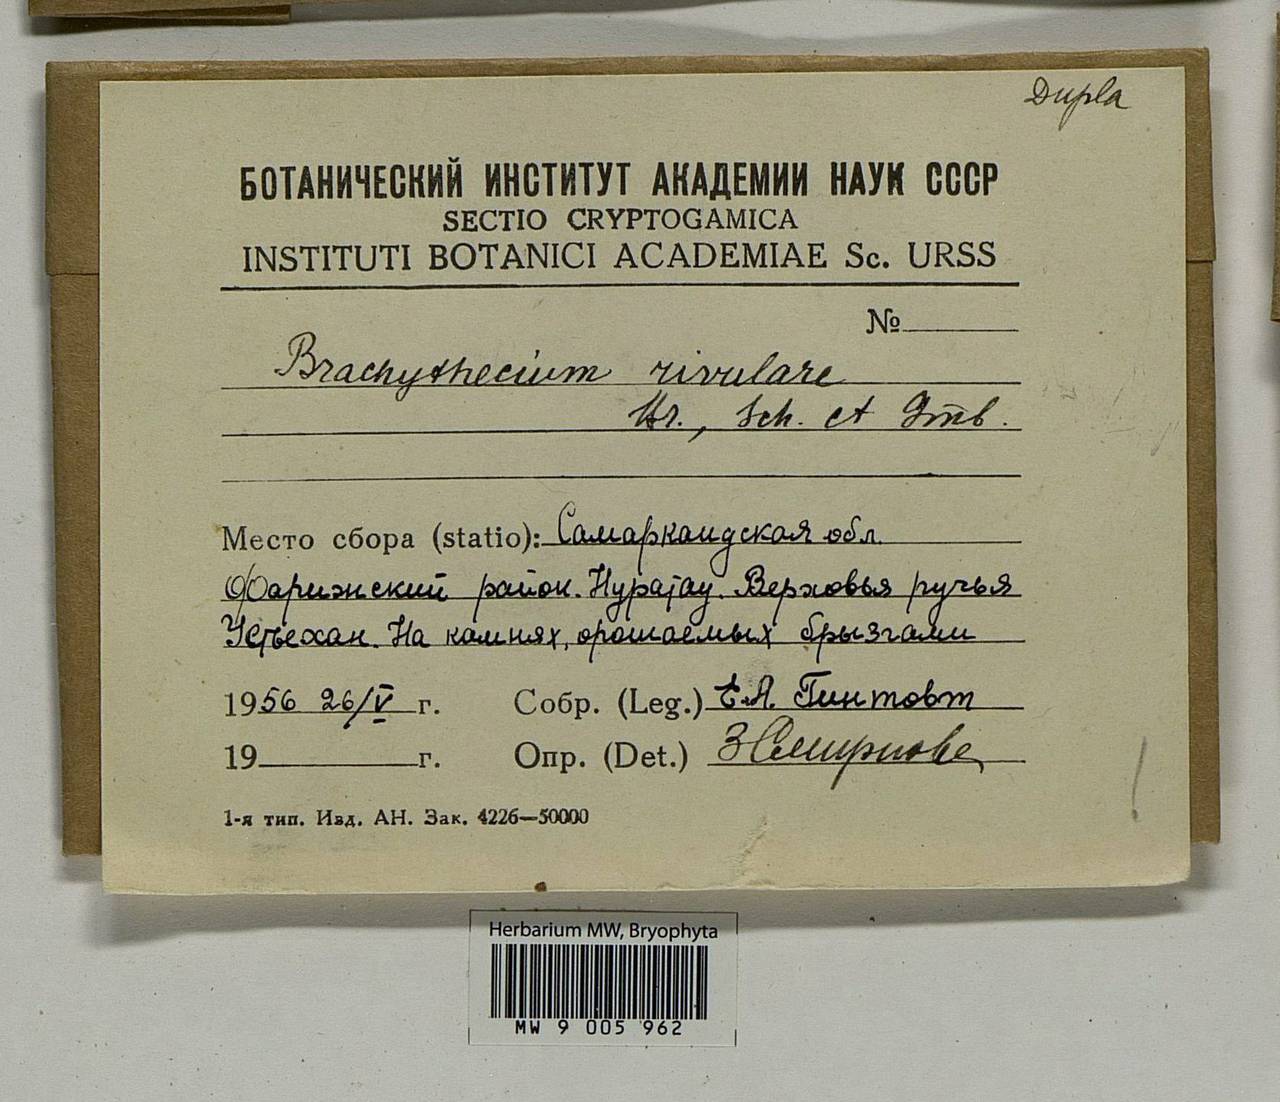 Dupla
БОТАНИЧЕСКИЙ ИНСТИТУТ АКАДЕМИИ НАУК СССР
SECTIO CRYPTOGAMICA
INSTITUTI BOTANICI ACADEMIAE Sc. URSS
№
Brachythecium rivulare
Br., Sch. et Gmb.
Место сбора (statio): Самаркандская обл.
Фаришский район. Нуратау. Верховья ручья
На камнях, орошаемых брызгами
1956 26/V г. Собр. (Leg.) Е.А. Гинтовт
19 г. Опр. (Det.) З Смирнова
1-я тип. Изд. АН. Зак. 4226—50000
!
Herbarium MW, Bryophyta
MW 9 005 962